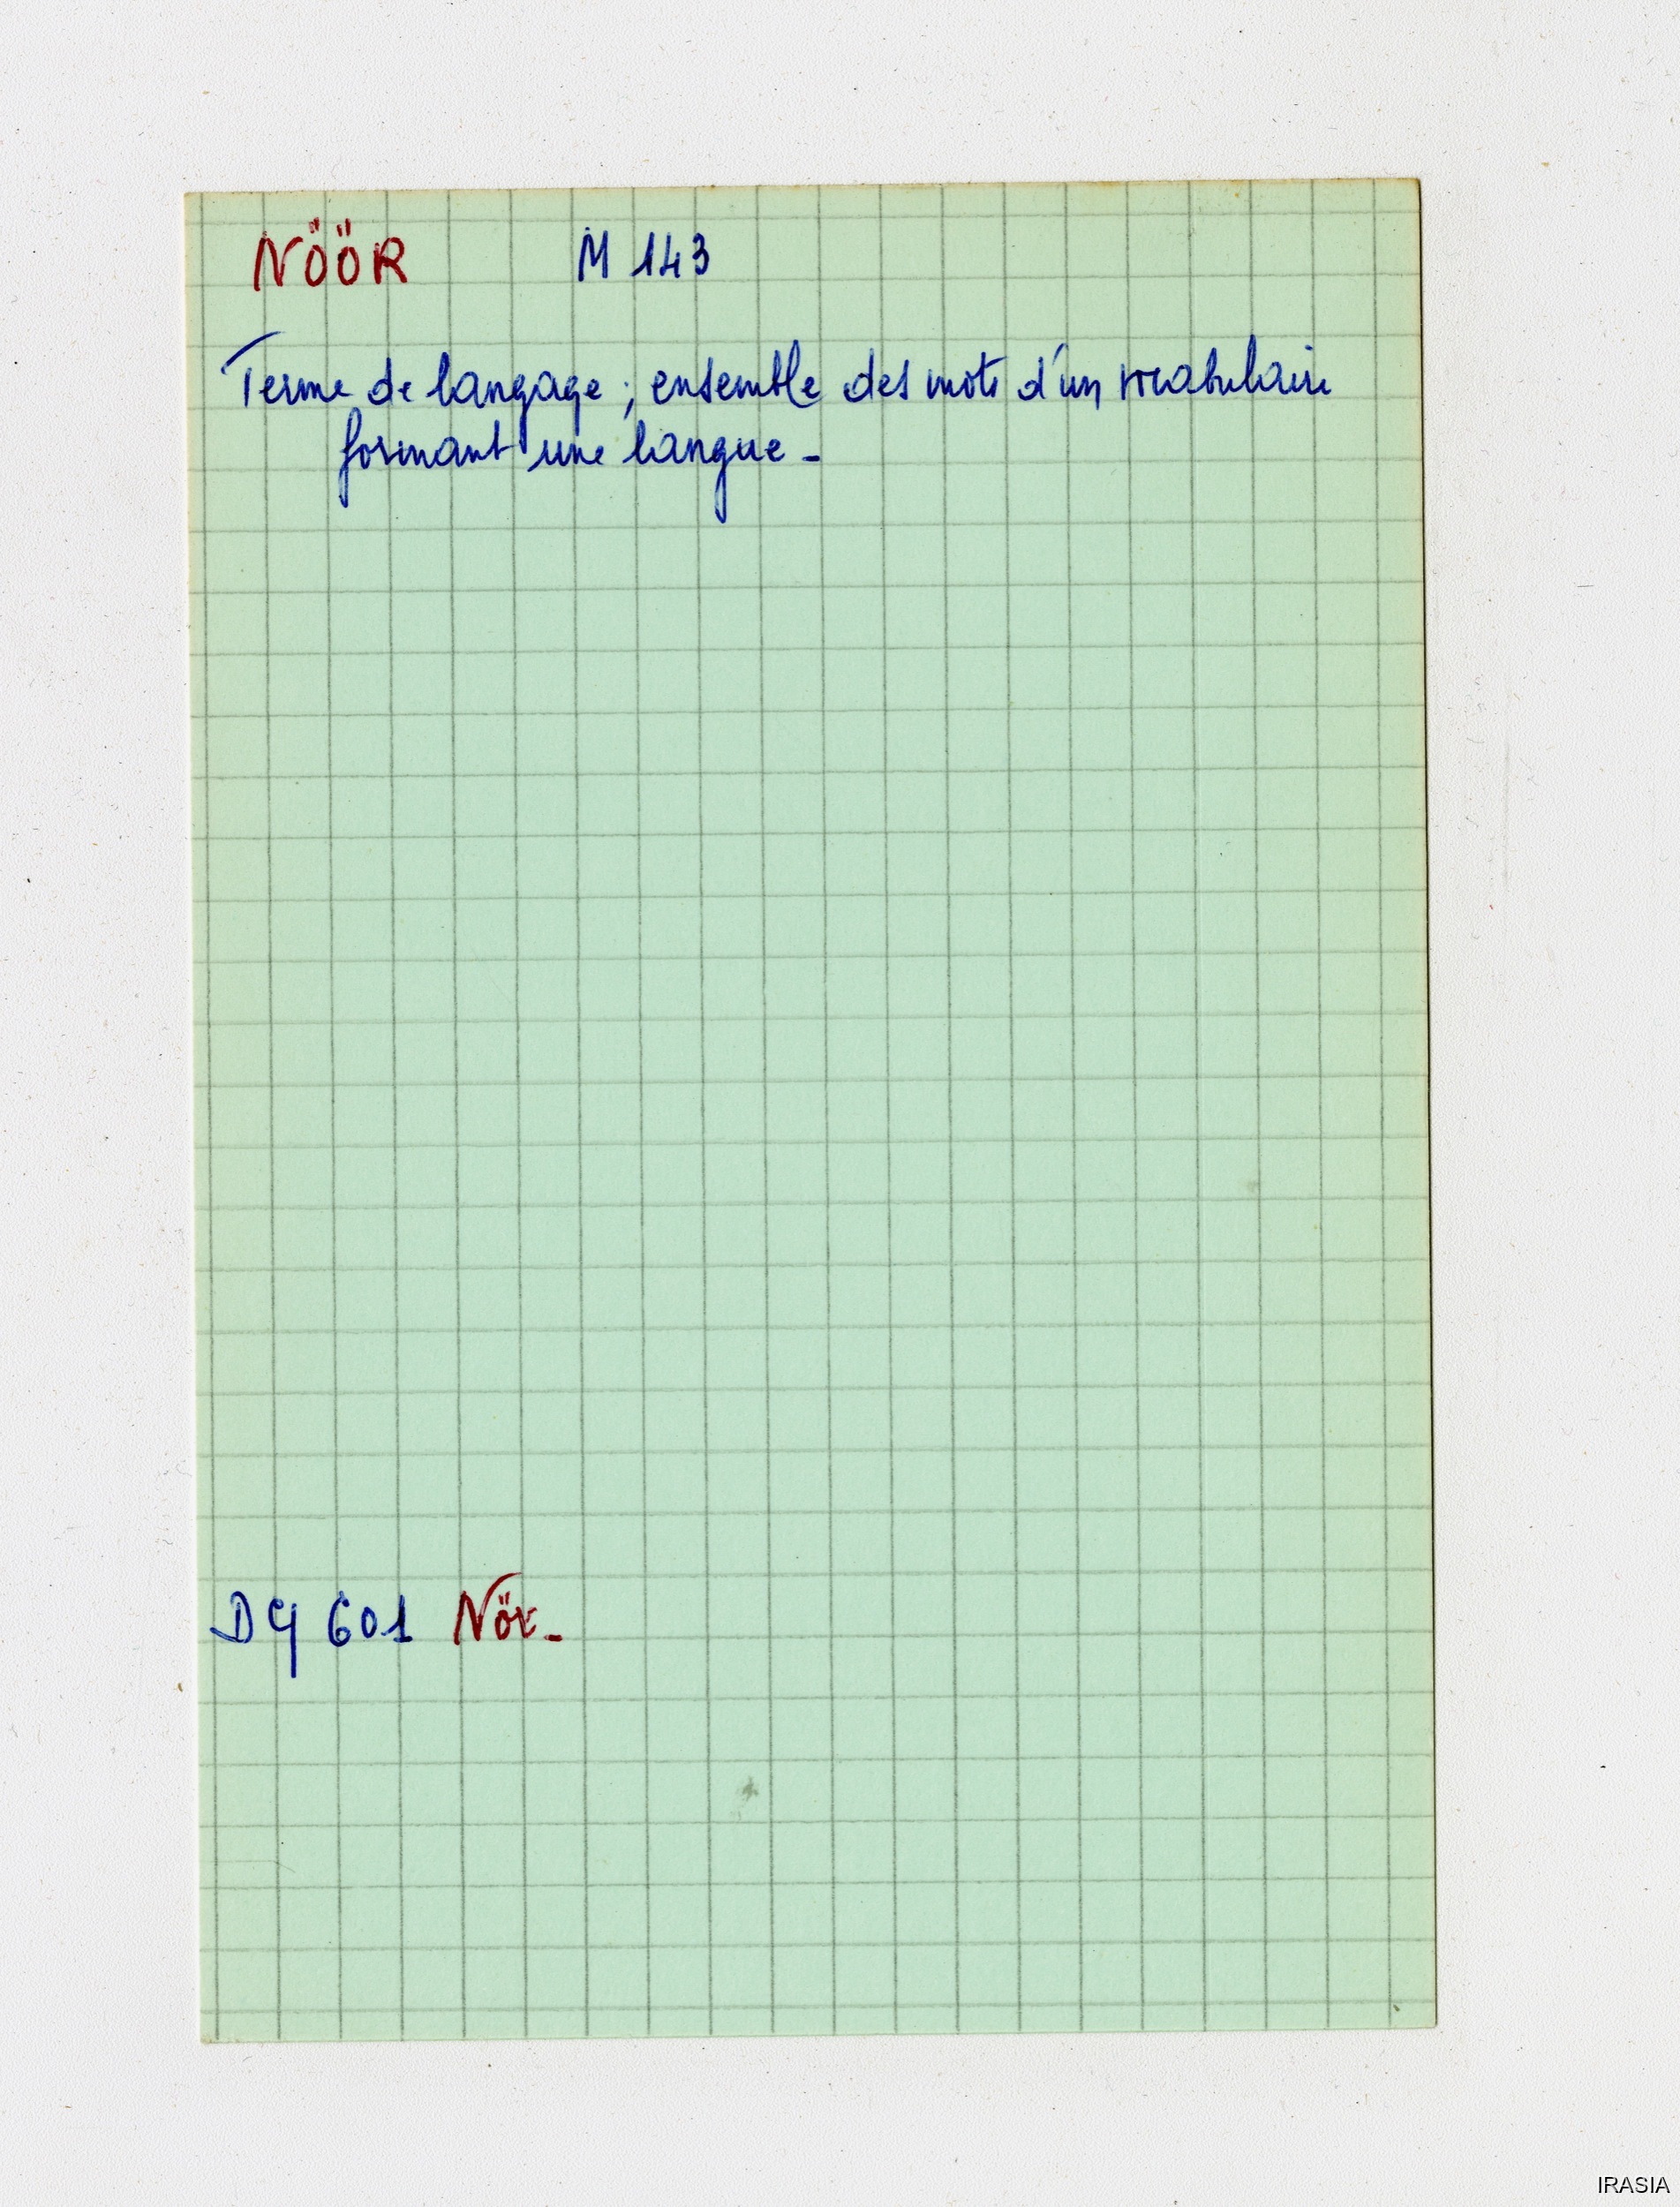 NÖÖR M 143
Terme de langage ; ensemble des mots d'un vocabulaire
formant une langue -
DG 601 Nör -
IRASIA